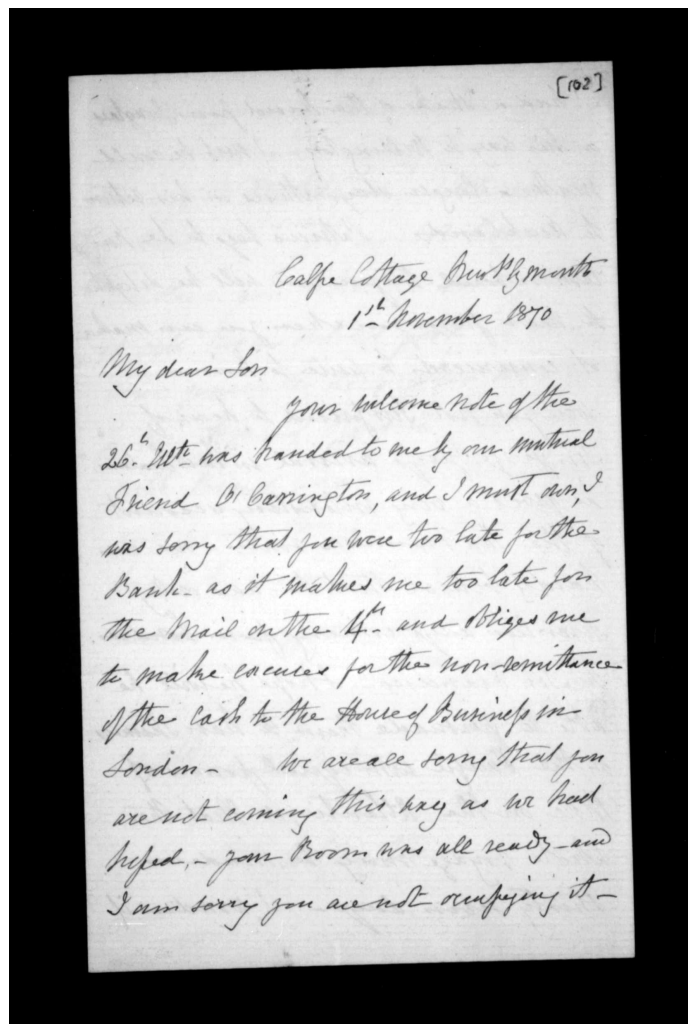 [102]
Calpe Cottage New Plymouth
1st November 1870
My dear Son
your welcome note of the
26th Ulto was handed to me by our mutual
Friend O' Carrington, and I must own, I
was sorry that you were too late for the
Bank - as it makes me too late for
the Mail on the 4th - and obliges me
to make excuses for the non-remittance
of the cash to the House of Business in
London - We are all sorry that you
are not coming this way as we had
hoped, - your Room was all ready - and
I am sorry you are not occupying it -